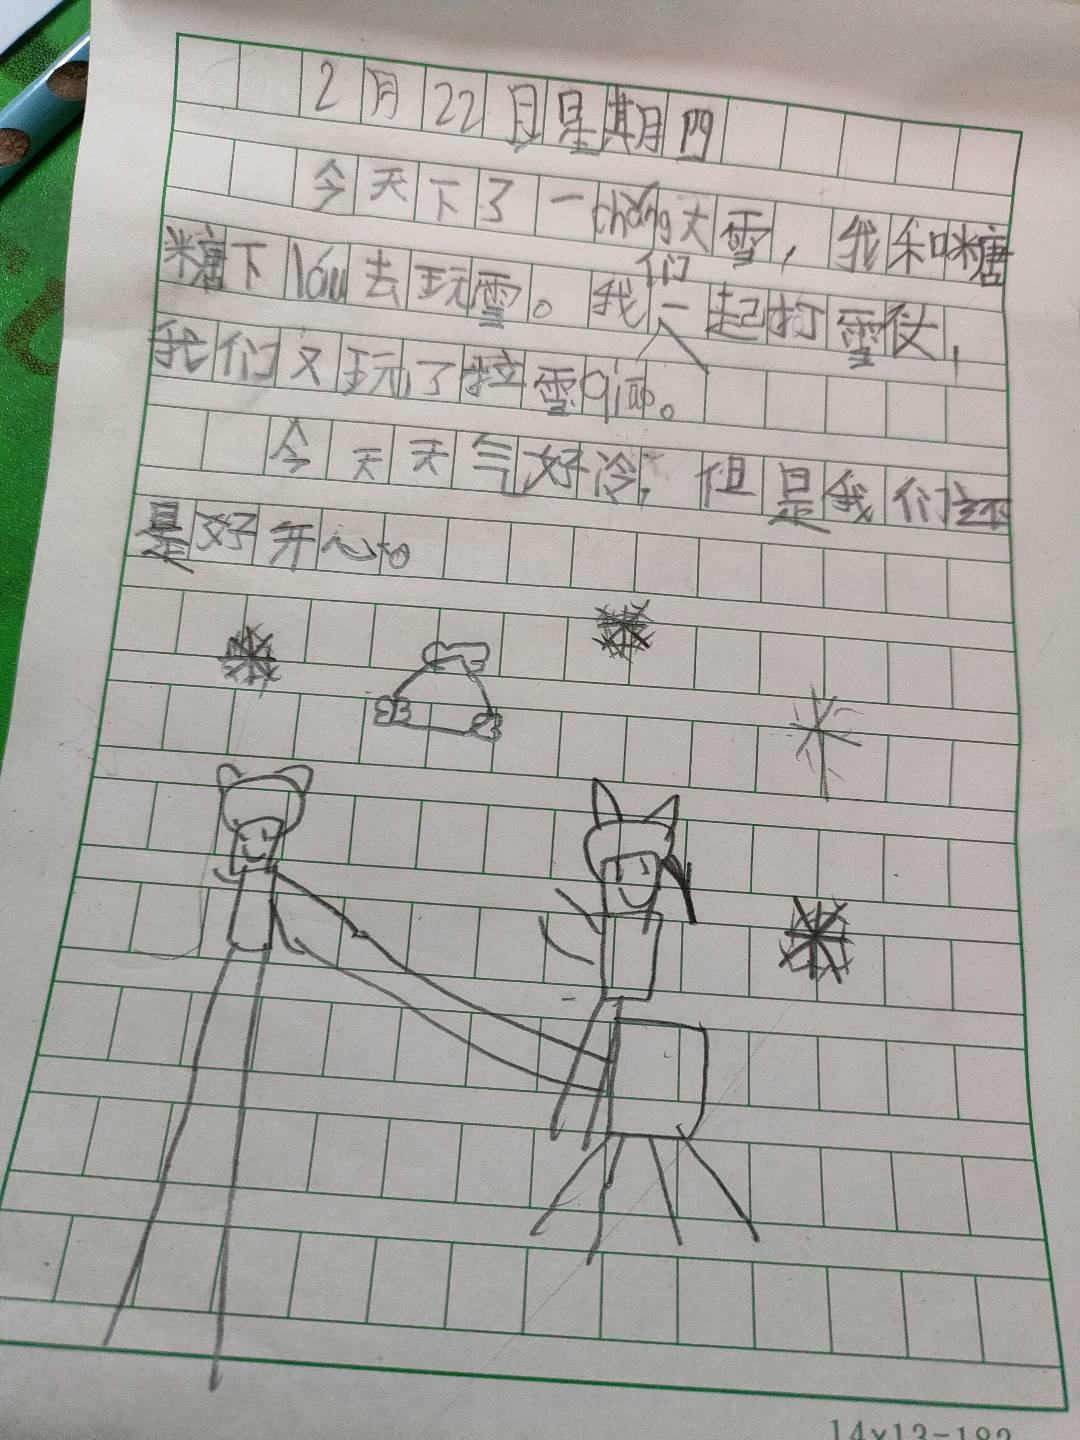 2月22日星期四
今天下了一chǎng大雪，我和咪糖
糖下lóu去玩雪。我们一起打雪仗，
我们又玩了拉雪qiāo。
今天天气好冷，但是我们还
是好开心。
14×13=182